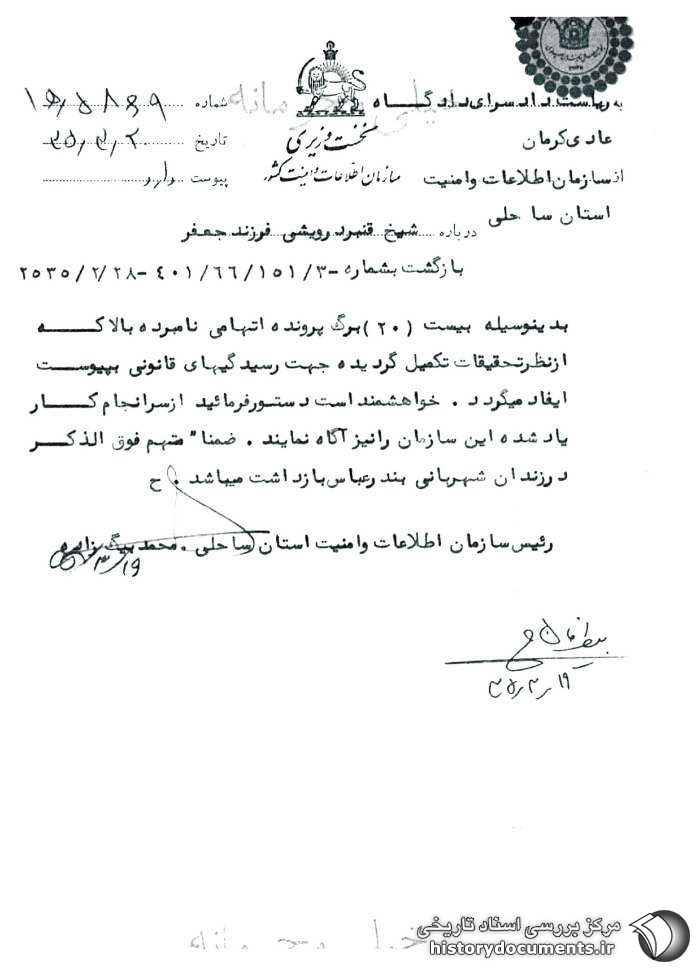 به ریاست دادسرای دادگاه
عادی کرمان
از سازمان اطلاعات و امنیت
استان ساحلی
نخست وزیری
سازمان اطلاعات و امنیت کشور
شماره
تاریخ
پیوست دارد
خیلی محرمانه
درباره شیخ قنبر درویشی فرزند جعفر
بازگشت بشماره ۳-/۱۵۱/۶۶/۴۰۱-۲۵۳۵/۲/۲۸
بدینوسیله بیست (۲۰) برگ پرونده اتهامی نامبرده بالا که
از نظر تحقیقات تکمیل گردیده جهت رسیدگیهای قانونی بپیوست
ایفاد میگردد . خواهشمند است دستور فرمائید از سرانجام کار
یاد شده این سازمان را نیز آگاه نمایند . ضمنا" متهم فوق الذکر
در زندان شهربانی بندرعباس بازداشت میباشد . ح
رئیس سازمان اطلاعات و امنیت استان ساحلی . محمد بیگ زاده
خیلی محرمانه
مرکز بررسی اسناد تاریخی
historydocuments.ir